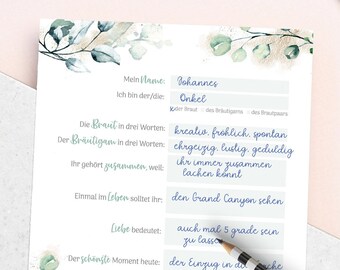 Mein Name: Johannes
Ich bin der/die: Onkel
x der Braut □ des Bräutigams □ des Brautpaars
Die Braut in drei Worten: kreativ, fröhlich, spontan
Der Bräutigam in drei Worten: ehrgeizig, lustig, geduldig
Ihr gehört zusammen, weil: ihr immer zusammen
lachen könnt
Einmal im Leben solltet ihr: den Grand Canyon sehen
Liebe bedeutet: auch mal 5 grade sein
zu lassen
Der schönste Moment heute: der Einzug in die